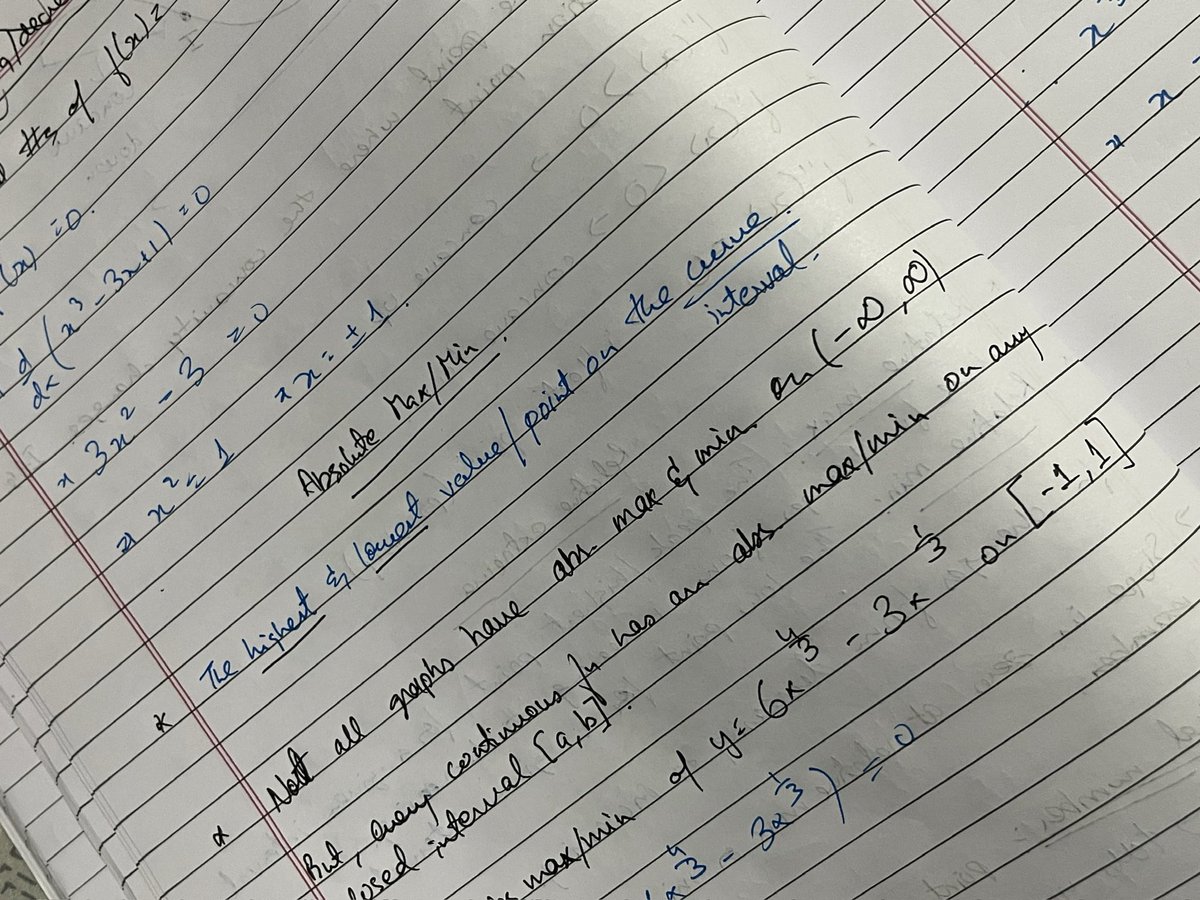 #s of f(x) =
(x) = 0.
d/dx (x³ - 3x + 1) = 0
3x² - 3 = 0
x² = 1
x = ± 1.
Absolute Max/Min.
The highest & lowest value/point on the curve.
interval.
* Not all graphs have abs max & min on (-∞, ∞)
* But, every continuous fn has an abs max/min on any
losed interval [a, b].
max/min of y = 6x^4/3 - 3x^1/3 on [-1, 1]
x^4/3 - 3x^1/3) = 0